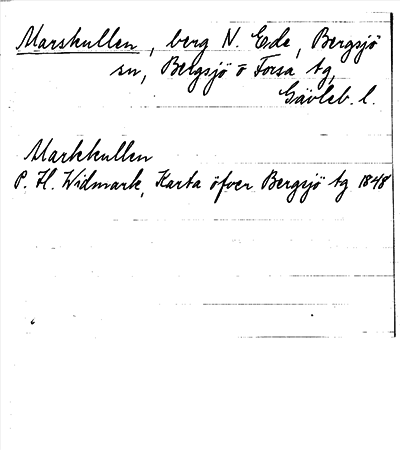 Marskullen, berg N. Ede, Bergsjö
sn, Bergsjö o Forsa tg,
Gävleb. l.
Markkullen
P. H. Widmark, Karta öfver Bergsjö tg 1848